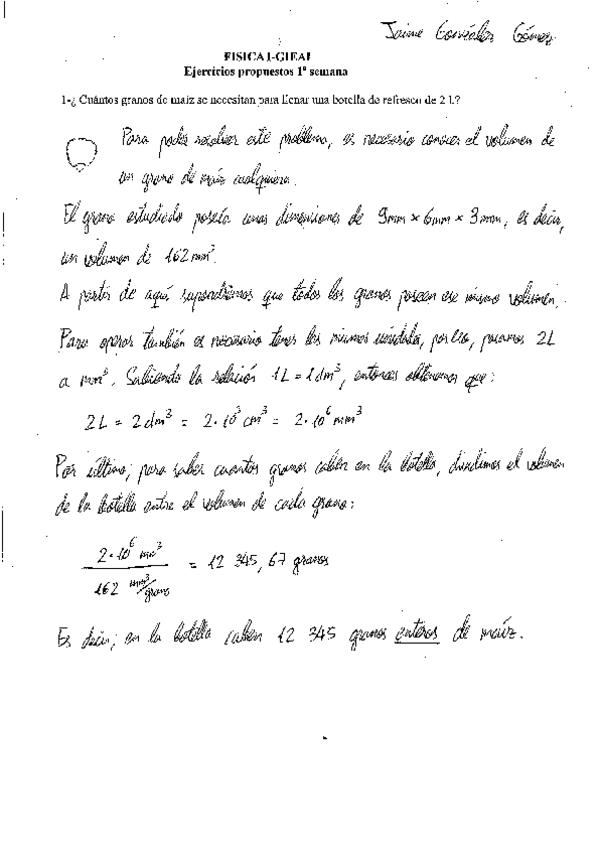 Jaime González Gómez
FISICA I-GIEAI
Ejercicios propuestos 1ª semana
1-¿ Cuántos granos de maíz se necesitan para llenar una botella de refresco de 2 l.?
Para poder resolver este problema, es necesario conocer el volumen de
un grano de maíz cualquiera.
El grano estudiado poseía unas dimensiones de 9mm × 6mm × 3mm, es decir,
un volumen de 162 mm³.
A partir de aquí supondremos que todos los granos poseen ese mismo volumen.
Para operar también es necesario tener las mismas unidades, por ello, pasamos 2L
a mm³. Sabiendo la relación 1L = 1dm³, entonces obtenemos que:
2L = 2dm³ = 2·10³ cm³ = 2·10⁶ mm³
Por último, para saber cuantos granos caben en la botella, dividimos el volumen
de la botella entre el volumen de cada grano:
2·10⁶ mm³
= 12 345,67 granos
162 mm³/grano
Es decir, en la botella caben 12 345 granos enteros de maíz.